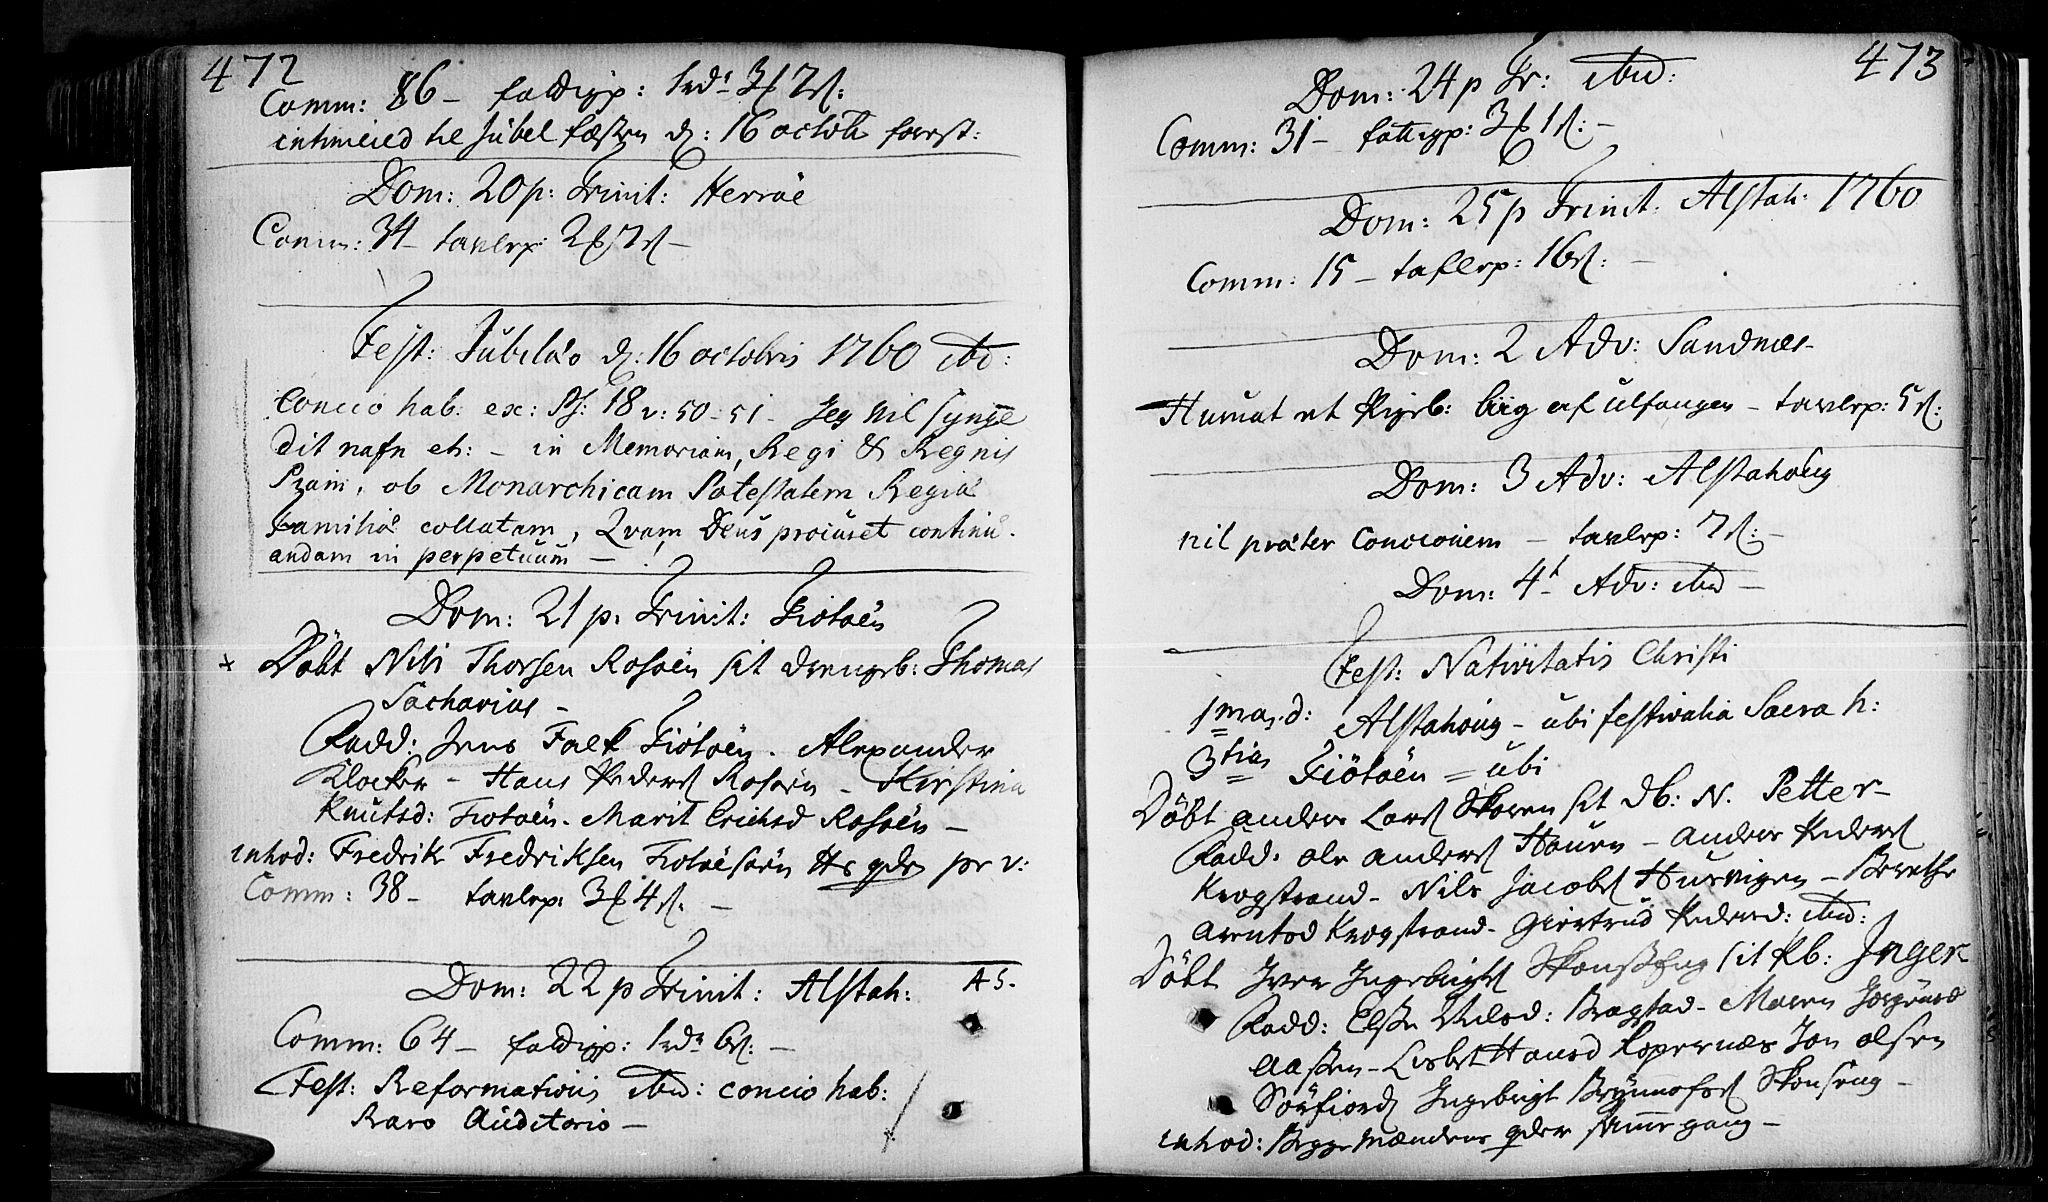 472
Comm: 86 – fattigp: 1rd 3 ℳ 7 ß:
intimeied til Jubel fæsten d: 16 octobr
Dom: 20 p: Trinit: Herröe
Comm: 34 – tavlep: 2 ℳ 7 ß –
Fest: Jubilæo d: 16 octobris 1760 ibid:
Concio hab: ex: Ps: 18 v: 50–51 – Jeg vil synge
dit nafn etc: – in Memoriam, Regi & Regnis
ob Monarchicam Potestatem Regiæ
Familiæ collatam, Qvam Deus continu-
andam in perpetuum –
Dom: 21 p: Trinit: Tiötöen
+ Döbt Nils Thorsen Rosöen sit drengeb: Thomas
Sacharias –
Fadd: Jens Falk Tiötöen. Alexander
Klocker – Hans Peders Rosöen – Kirstina
Knutsd: Tiotöen – Marit Erichsd Rosöen –
inhod: Fredrik Fredriksen
Comm: 38 – tavlep: 3 ℳ 4 ß: –
Dom: 22 p Trinit: Alstah: A S.
Comm: 64 – fattigp: 1rdr 6 ß: –
Fest: Reformationis ibid: concio hab:
Raro Auditorio –
473
Dom: 24 p Tr: ibid:
Comm: 31 – fattigp: 3 ℳ 1 ß: –
Dom: 25 p Trinit: Alstah: 1760
Comm: 15 – taflep: 16 ß: –
Dom: 2 Adv: Sandnes –
Humat et Pigeb: af Ulfangen – tavlep: 5 ß:
Dom: 3 Adv: Alstahoug
nil præter Concionem – tavlep: 7 ß: –
Dom: 4t Adv: ibid –
Fest: Nativitatis Christi
1ma. d: Alstahoug – ubi festivalia Sacra h:
3tia Tiötöen = ubi
Döbt anders Lars sit db: N. Petter –
Fadd: ole anders Houen – anders Peders
Krogstrand – Nils Jacobs Husvigen – Berethe
arentsd Krogstrand – Giertrud Pedersd: ibid:
Döbt Iver Ingebrigts Skonseng sit Pb: Inger
Fadd: Elsse Bragstad – Maren Jörgensd
Lisbet Hansd Kopernæs Jon olsen
Sörfiord Ingebrigt Skonseng –
inhod: Begge Mændene samme gang –